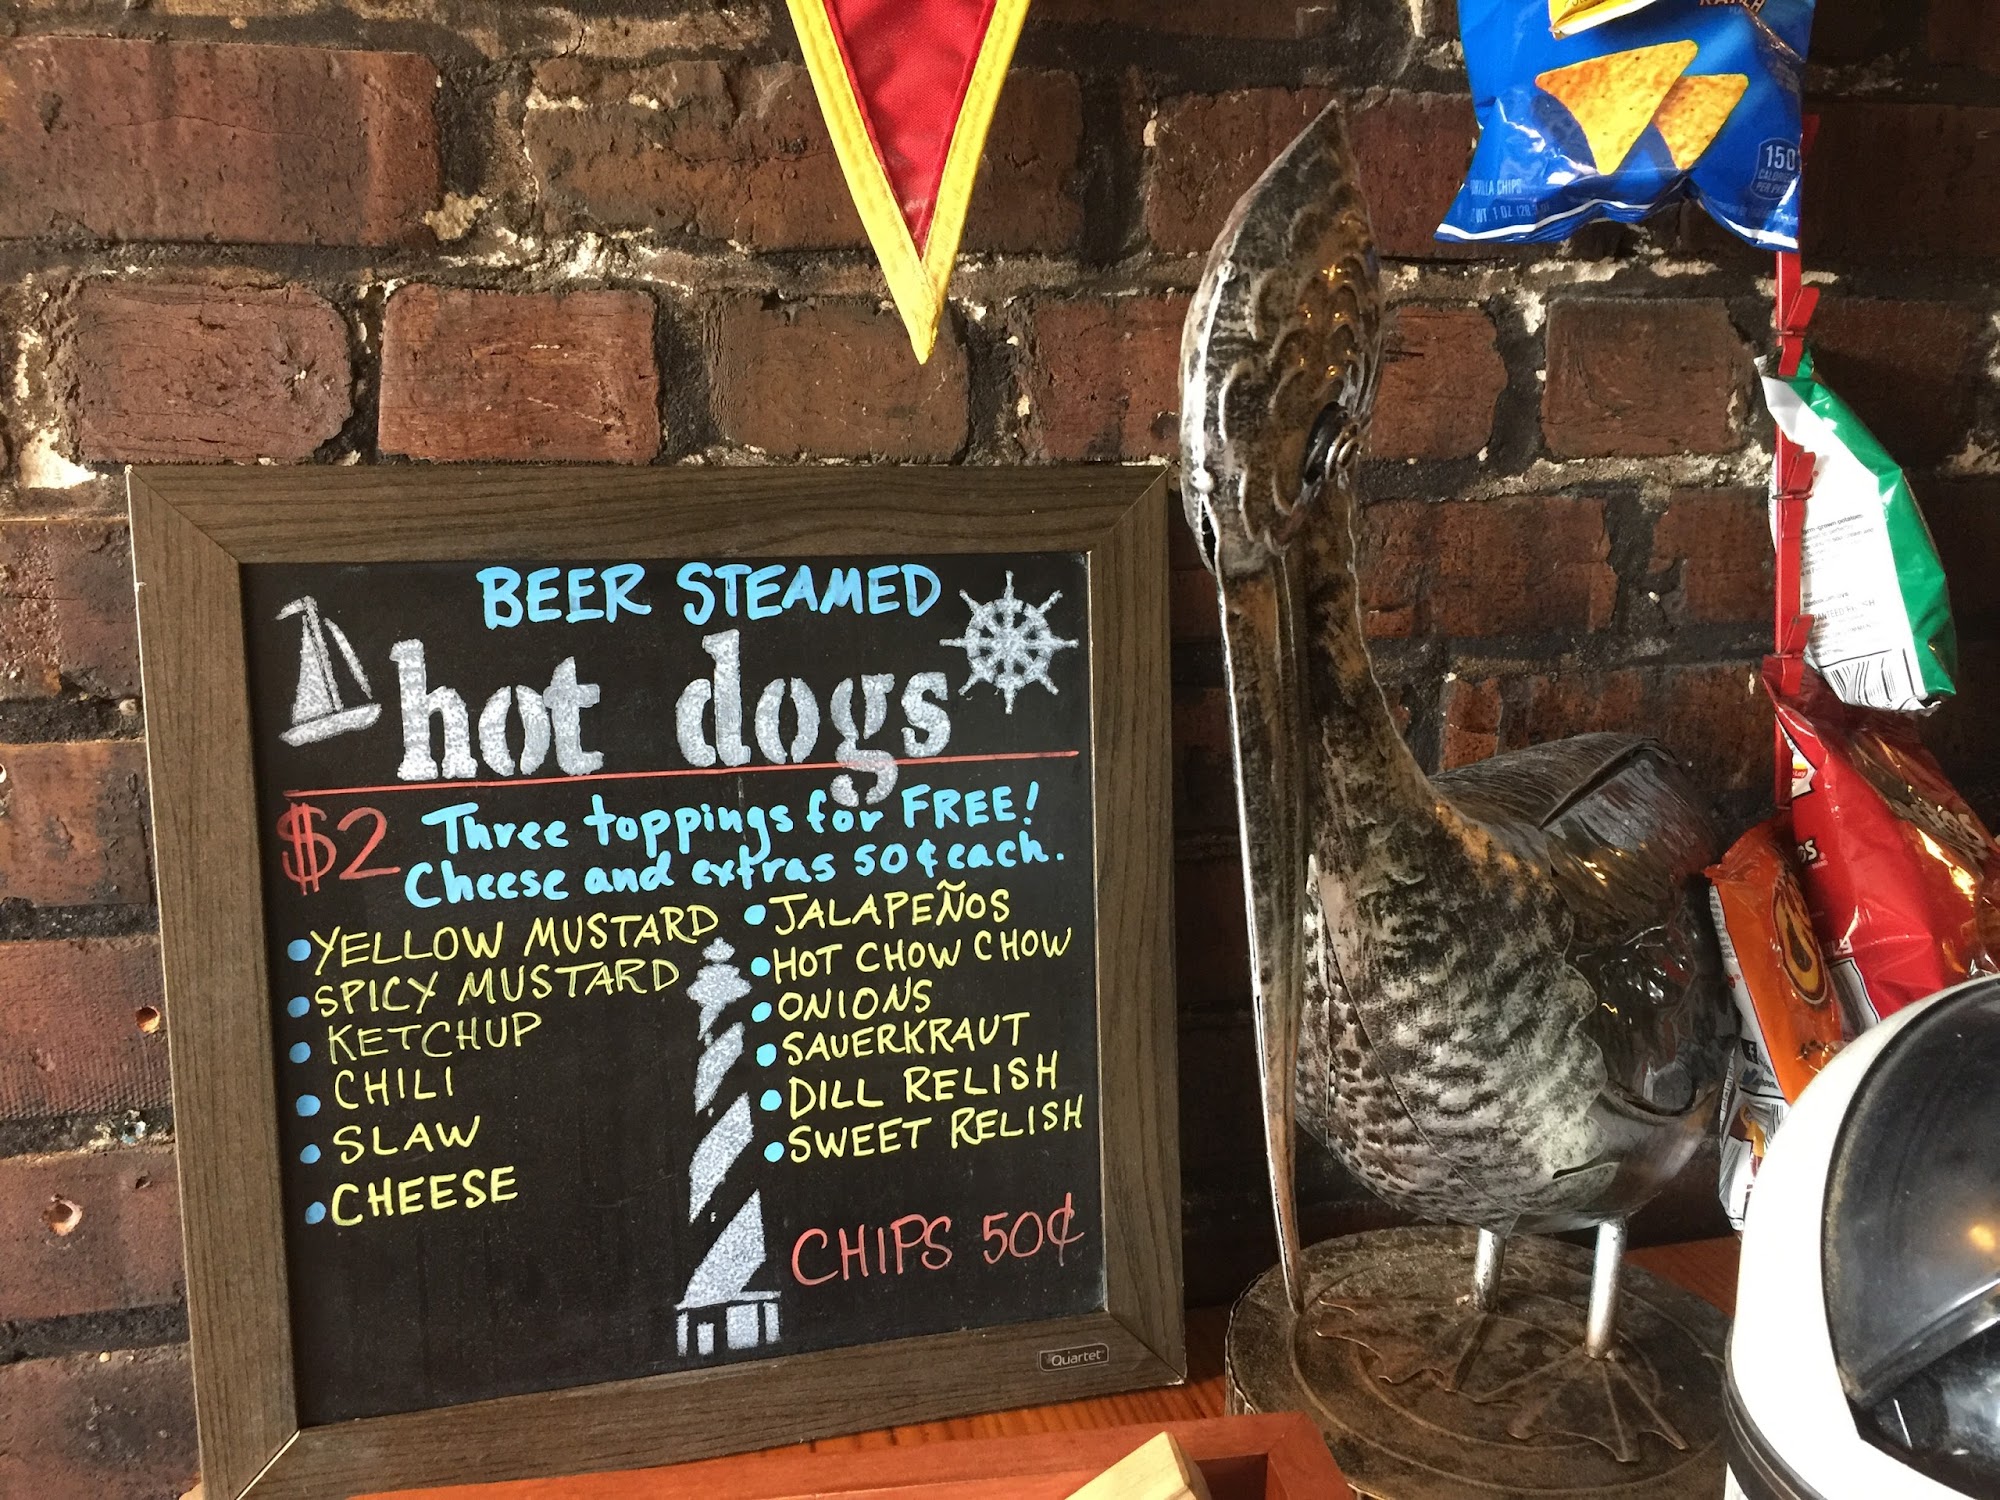 BEER STEAMED
hot dogs
$2 Three toppings for FREE!
Cheese and extras 50¢ each.
YELLOW MUSTARD
SPICY MUSTARD
KETCHUP
CHILI
SLAW
CHEESE
JALAPEÑOS
HOT CHOW CHOW
ONIONS
SAUERKRAUT
DILL RELISH
SWEET RELISH
CHIPS 50¢
Quartet
150
CALORIES
CHIPS
1 OZ